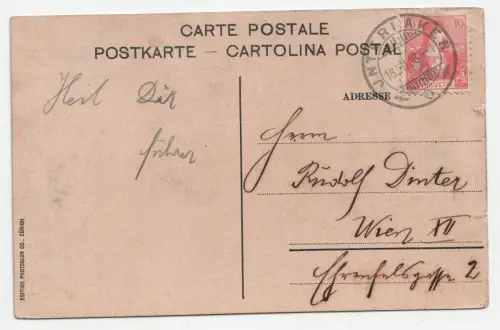 CARTE POSTALE
POSTKARTE – CARTOLINA POSTAL
INTERLAKEN
10
ADRESSE
Heil
Führer
Herrn
Rudolf Dinter
Wien XII
Ehrenfelsgasse 2
EDITION PHOTOGLOB CO., ZÜRICH.